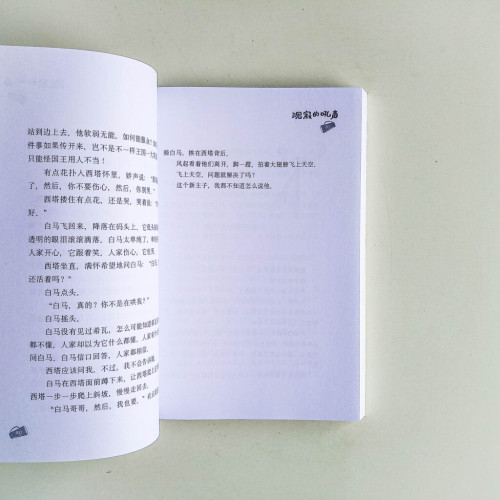 站到边上去，他软弱无能，如何能服众？这
件事如果传开来，岂不是不一样王国一大
只能怪国王用人不当！
有点花扑入西塔怀里，娇声说：
了，然后，你不要伤心，然后，你别哭。"
西塔搂住有点花，还是哭，哭着说：
好。"
白马飞回来，降落在码头上，它低头
透明的眼泪滚滚滴落，白马太单纯了，
人家开心，它跟着笑，人家伤心，它就哭
西塔坐直，满怀希望地问白马："白
还活着吗？"
白马点头。
"白马，真的？你不是在哄我？"
白马摇头。
白马没有见过希瓦，怎么可能知道
都不懂，人家却以为它什么都懂，人家
问白马，白马信口回答，人家都相信。
西塔应该问我，不过，我不会告诉她
白马在西塔面前蹲下来，让西塔爬上
西塔一步一步爬上斜坡，慢慢走回去。
"白马哥哥，然后，我也要。"有点
沉寂的吼声
骑白马，挨在西塔背后。
风起看着他们离开，脚一蹬，拍着大翅膀飞上天空。
飞上天空，问题就解决了吗？
这个新主子，我都不知道怎么说他。